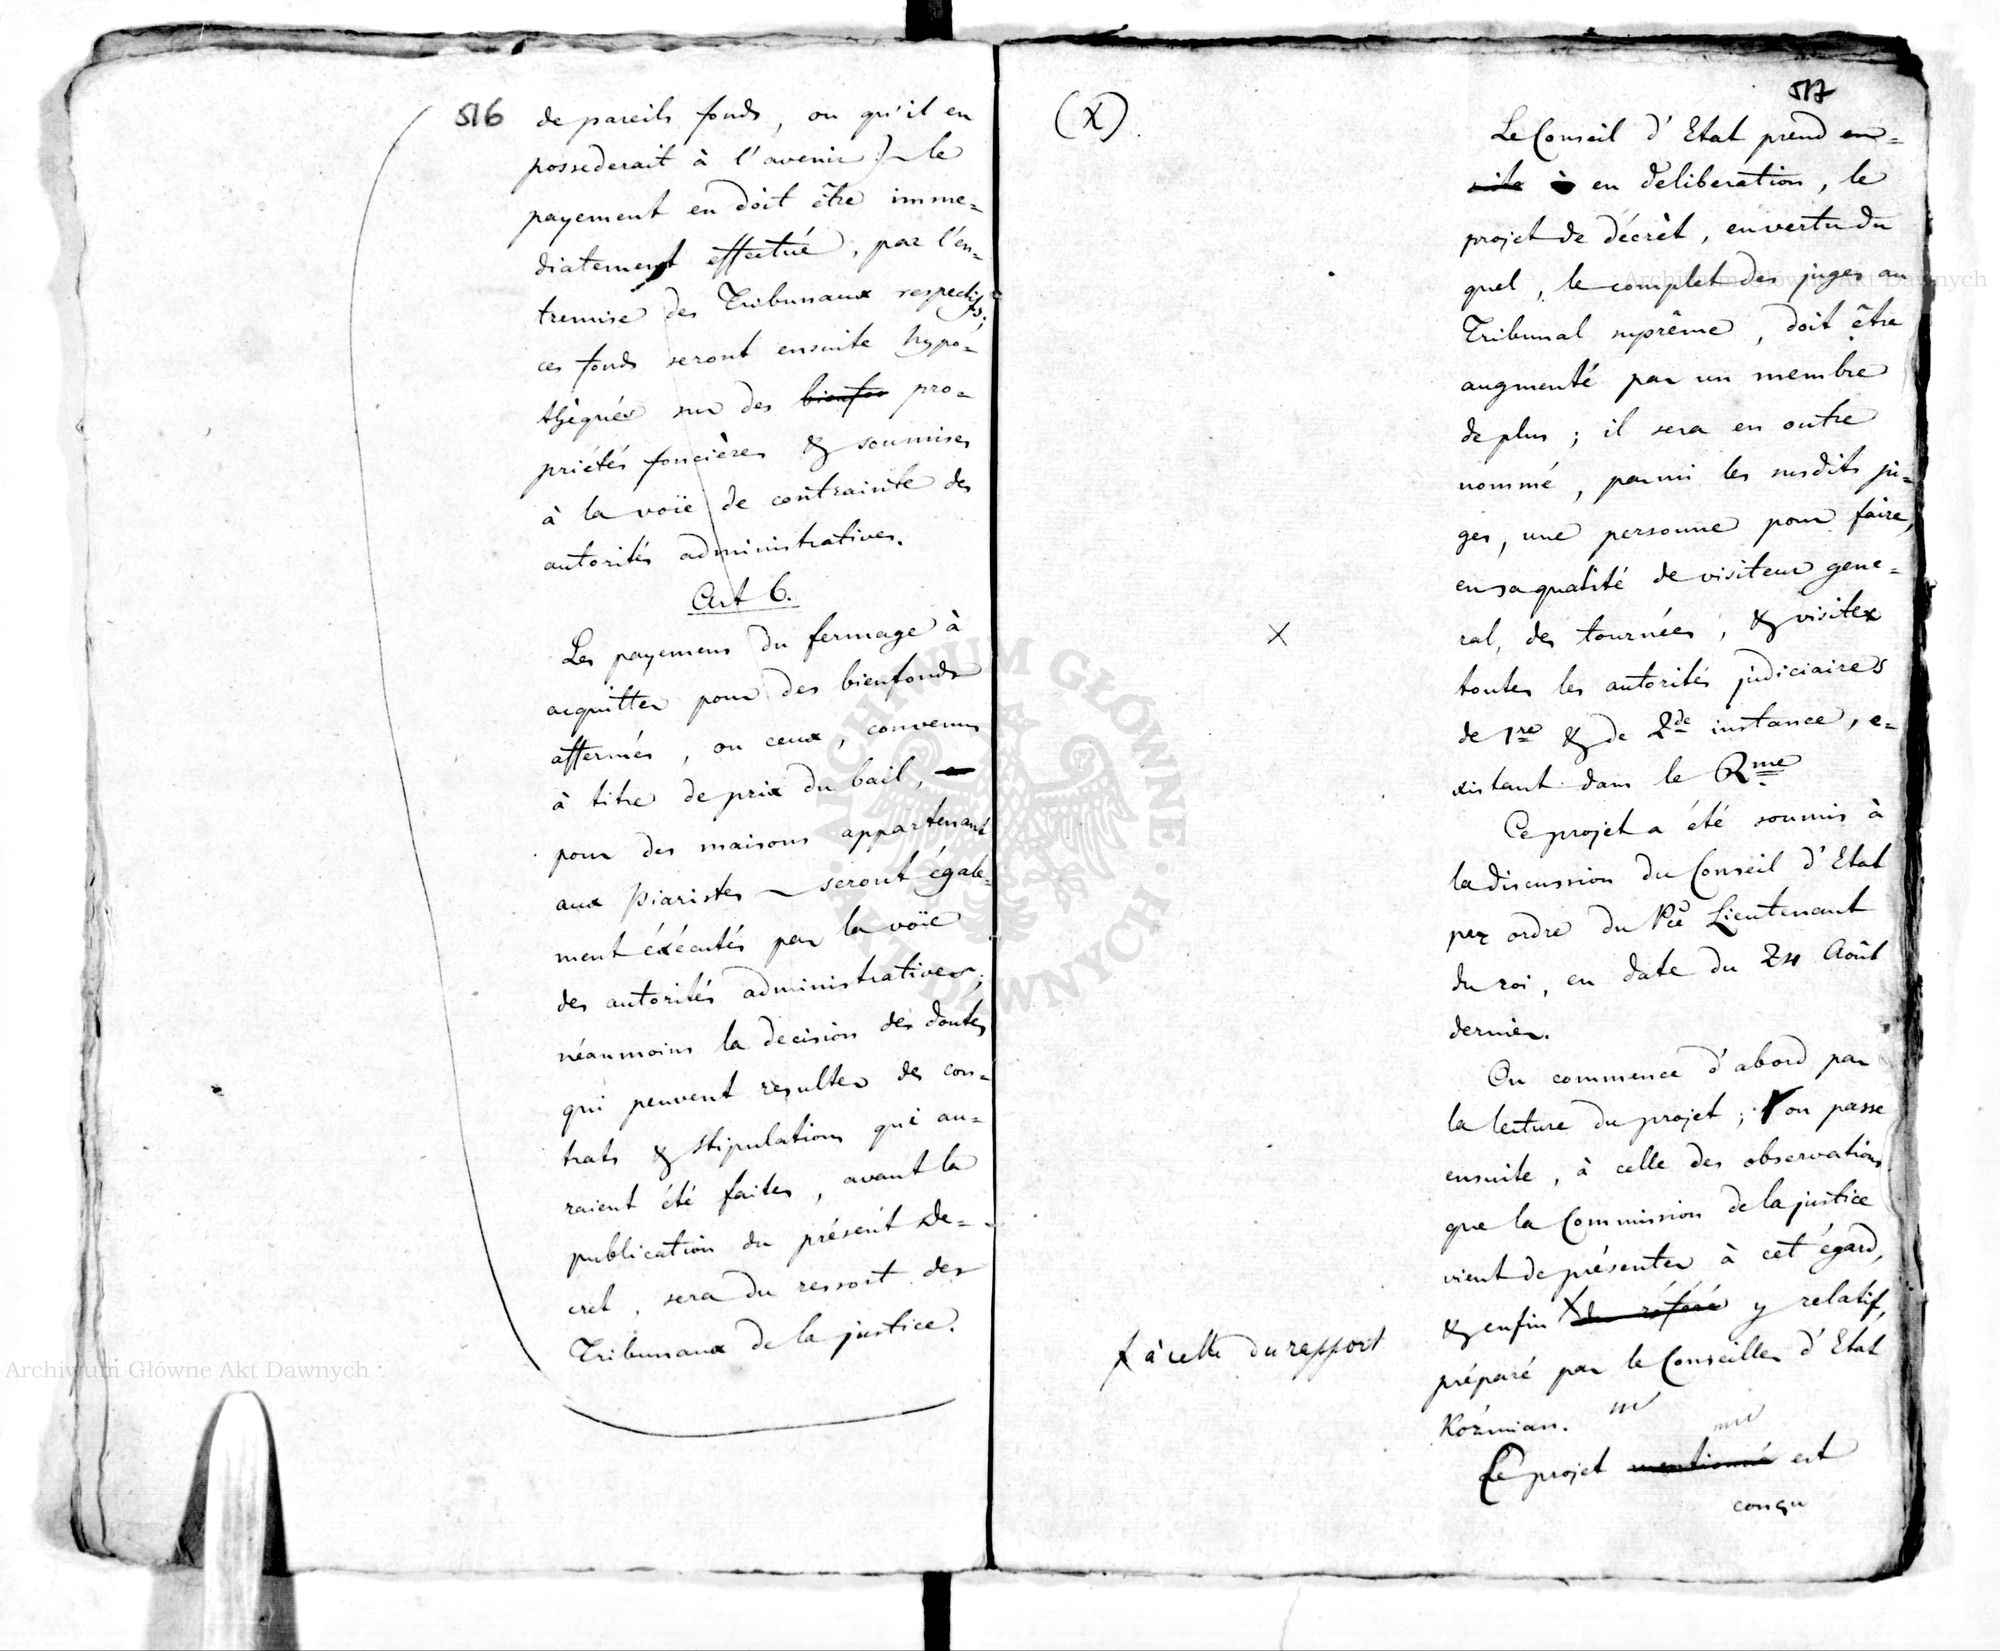 516
de pareils fonds, ou qu'il en
possederait à l'avenir) le
payement en doit être imme=
diatement effectué, par l'en=
tremise des Tribunaux respectifs;
ces fonds seront ensuite hypo=
théqués sur des bienfon pro=
priétés foncières & soumises
à la voïe de contrainte des
autorités administratives.
Art 6.
Les payemens du fermage à
acquitter pour des bienfonds
affermés, ou ceux, convenus
à titre de prix du bail,
pour des maisons appartenant
aux Piaristes seront égale=
ment éxécutés par la voïe
des autorités administratives;
néanmoins la decision des doutes
qui peuvent resulter des con=
trats & stipulations qui au=
raient été faites, avant la
publication du présent De=
cret, sera du ressort des
Tribunaux de la justice.
517
(X).
Le Conseil d'Etat prend en=
suite à en déliberation, le
projet de décrèt, en vertu du
quel, le complet des juges au
Tribunal suprême, doit être
augmenté par un membre
de plus; il sera en outre
nommé, parmi les susdits ju=
ges, une personne pour faire,
en sa qualité de visiteur gene=
ral, des tournées, & visiter
X
toutes les autorités judiciaires
de 1re & de 2de instance, e=
xistant dans le Rme
Ce projet a été soumis à
la discussion du Conseil d'Etat
par ordre du Pce Lieutenant
du roi, en date du 24 Août
dernier.
On commence d'abord par
la lecture du projet; on passe
ensuite, à celle des observations
que la Commission de la justice
vient de présenter à cet égard,
& enfin X du référé y relatif,
X à celle du rapport
préparé par le Conseiller d'Etat
Koźmian.
Le projet mentionné est
conçu
Archiwum Główne Akt Dawnych
Archiwum Główne Akt Dawnych
ARCHIWUM GŁÓWNE · AKT DAWNYCH ·